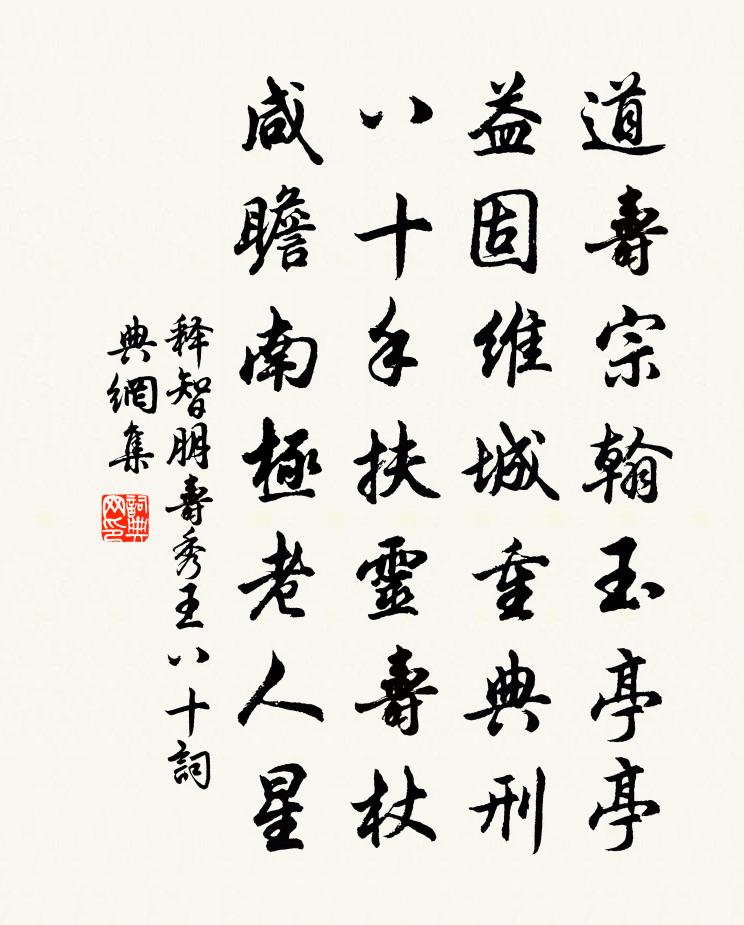 道壽宗翰玉亭亭
益固維城重典刑
八十手扶靈壽杖
咸瞻南極老人星
释智朋壽秀王八十詞
典網集
詞典网印